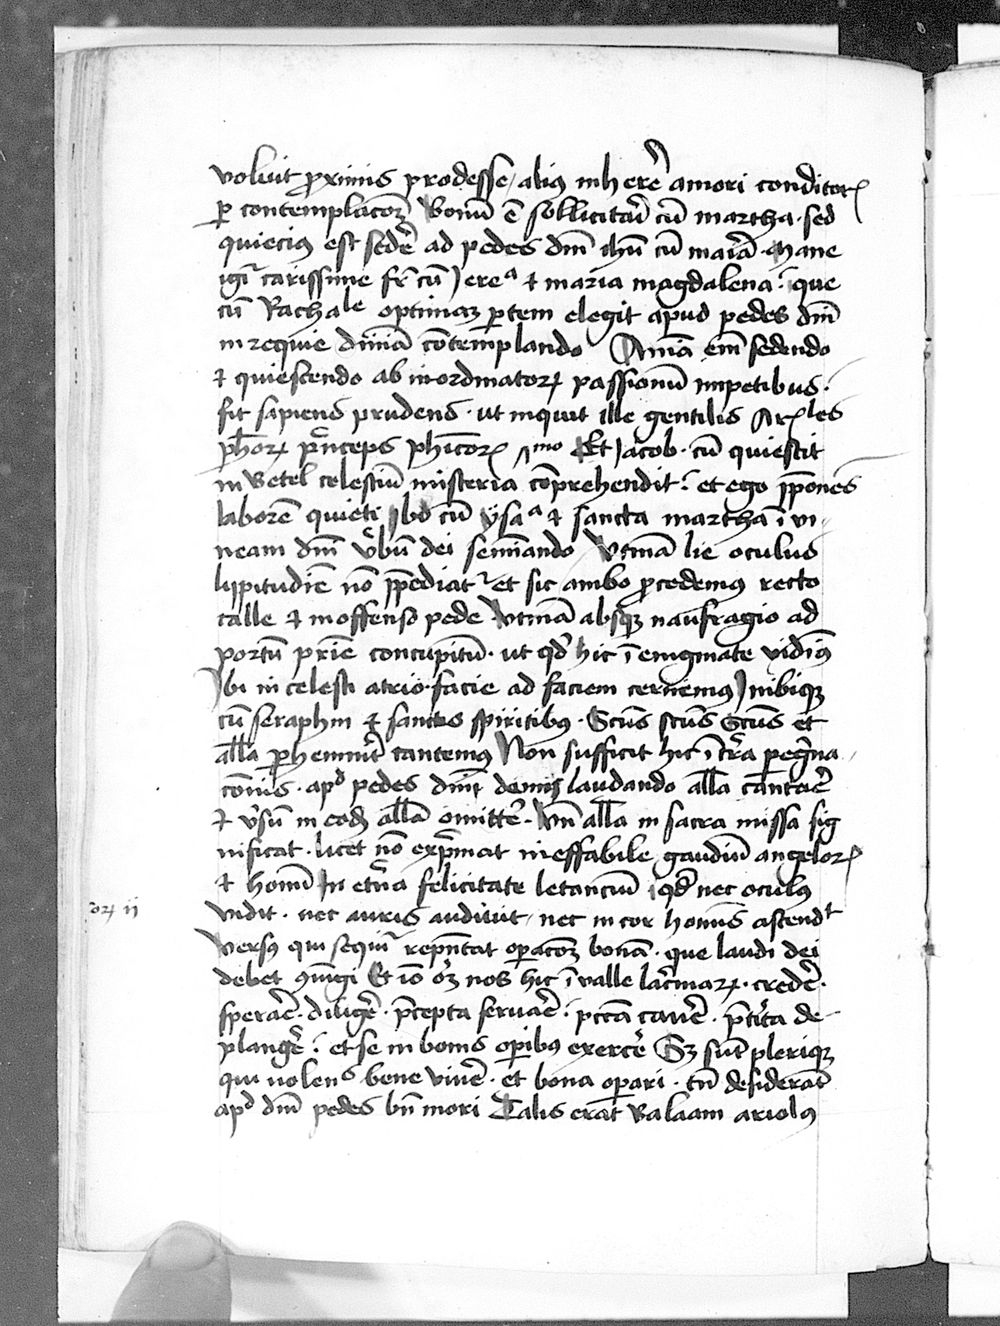 voluit proximis prodesse / alius inherere amori conditorꝝ
ꝑ contemplacōēꝫ Bonū ē sollicitari cū martha · sed
quiecius est sedere ad pedes dm̄i ihū cū maria Mane
igit carissime fr̄ cū Jereᵃ et maria magdalena : que
cū Rachale optimaꝫ ꝑtem elegit apud pedes dn̄i
in requie diuiā cōtemplando Anima em̄ sedendo
et quiescendo ab inordinatorꝝ passionū impetibus ·
fit sapiens prudens · ut inquit ille gentilis Arꝉles
ph̄orꝝ princeps phicorꝝ Et Jacob · cū quiescit
in Betel celestiū misteria cōprehendit : et ego p̄ponēs
laborē quieti Ibo cū ysaᵃ et sancta martha ī vi-
neam dn̄i v̓bū dei semīando Vtinā lie oculus
lippitudiē nō īpediat et sic ambo ꝓcedemus recto
calle et inoffenso pede Vtinā absqꝫ naufragio ad
portū pr̄ie concupitū · ut qd̓ hic ī enigmate vidim̄us
Ibi in celesti atrio facie ad faciem cernemus Inibiqꝫ
cū seraphin et sanctis spiritibus · Sc̄us sc̄us Sc̄us et
all̄a ꝑhenniter cantemus Non sufficit hic ī tr̄a pegr̄na-
cōnis · apd̓ pedes dn̄i laudando all̄a cantare
et v̓sū in eodꝫ all̄a omitte̓ · Vn̄ all̄a in sacra missa sig
nificat · licet nō exp̄mat ineffabile gaudiū angelorꝝ
et homiū In et̓na felicitate letanciū qd̓ nec oculus
vidit · nec auris audiuit / nec in cor hom̄is ascendt
Versus qui sequit rep̄ntat opacōꝫ bonā · que laudi dei
debet ↄiūgi Et iō oꝫ nos hic ī valle lac̓marꝝ · crede̓ ·
sperare · dilige̓ · p̄cepta seruare : pcc̄a caue̓ · p̄tita de-
plange̓ : et se in bonis oꝑibus exerce̓ Sꝫ sūt pleriqꝫ
qui nolens bene viue̓ · et bona oꝑari · tn̄ desiderāt
apd̓ dn̄i pedes bn̄ mori Talis erat Balaam ariolus